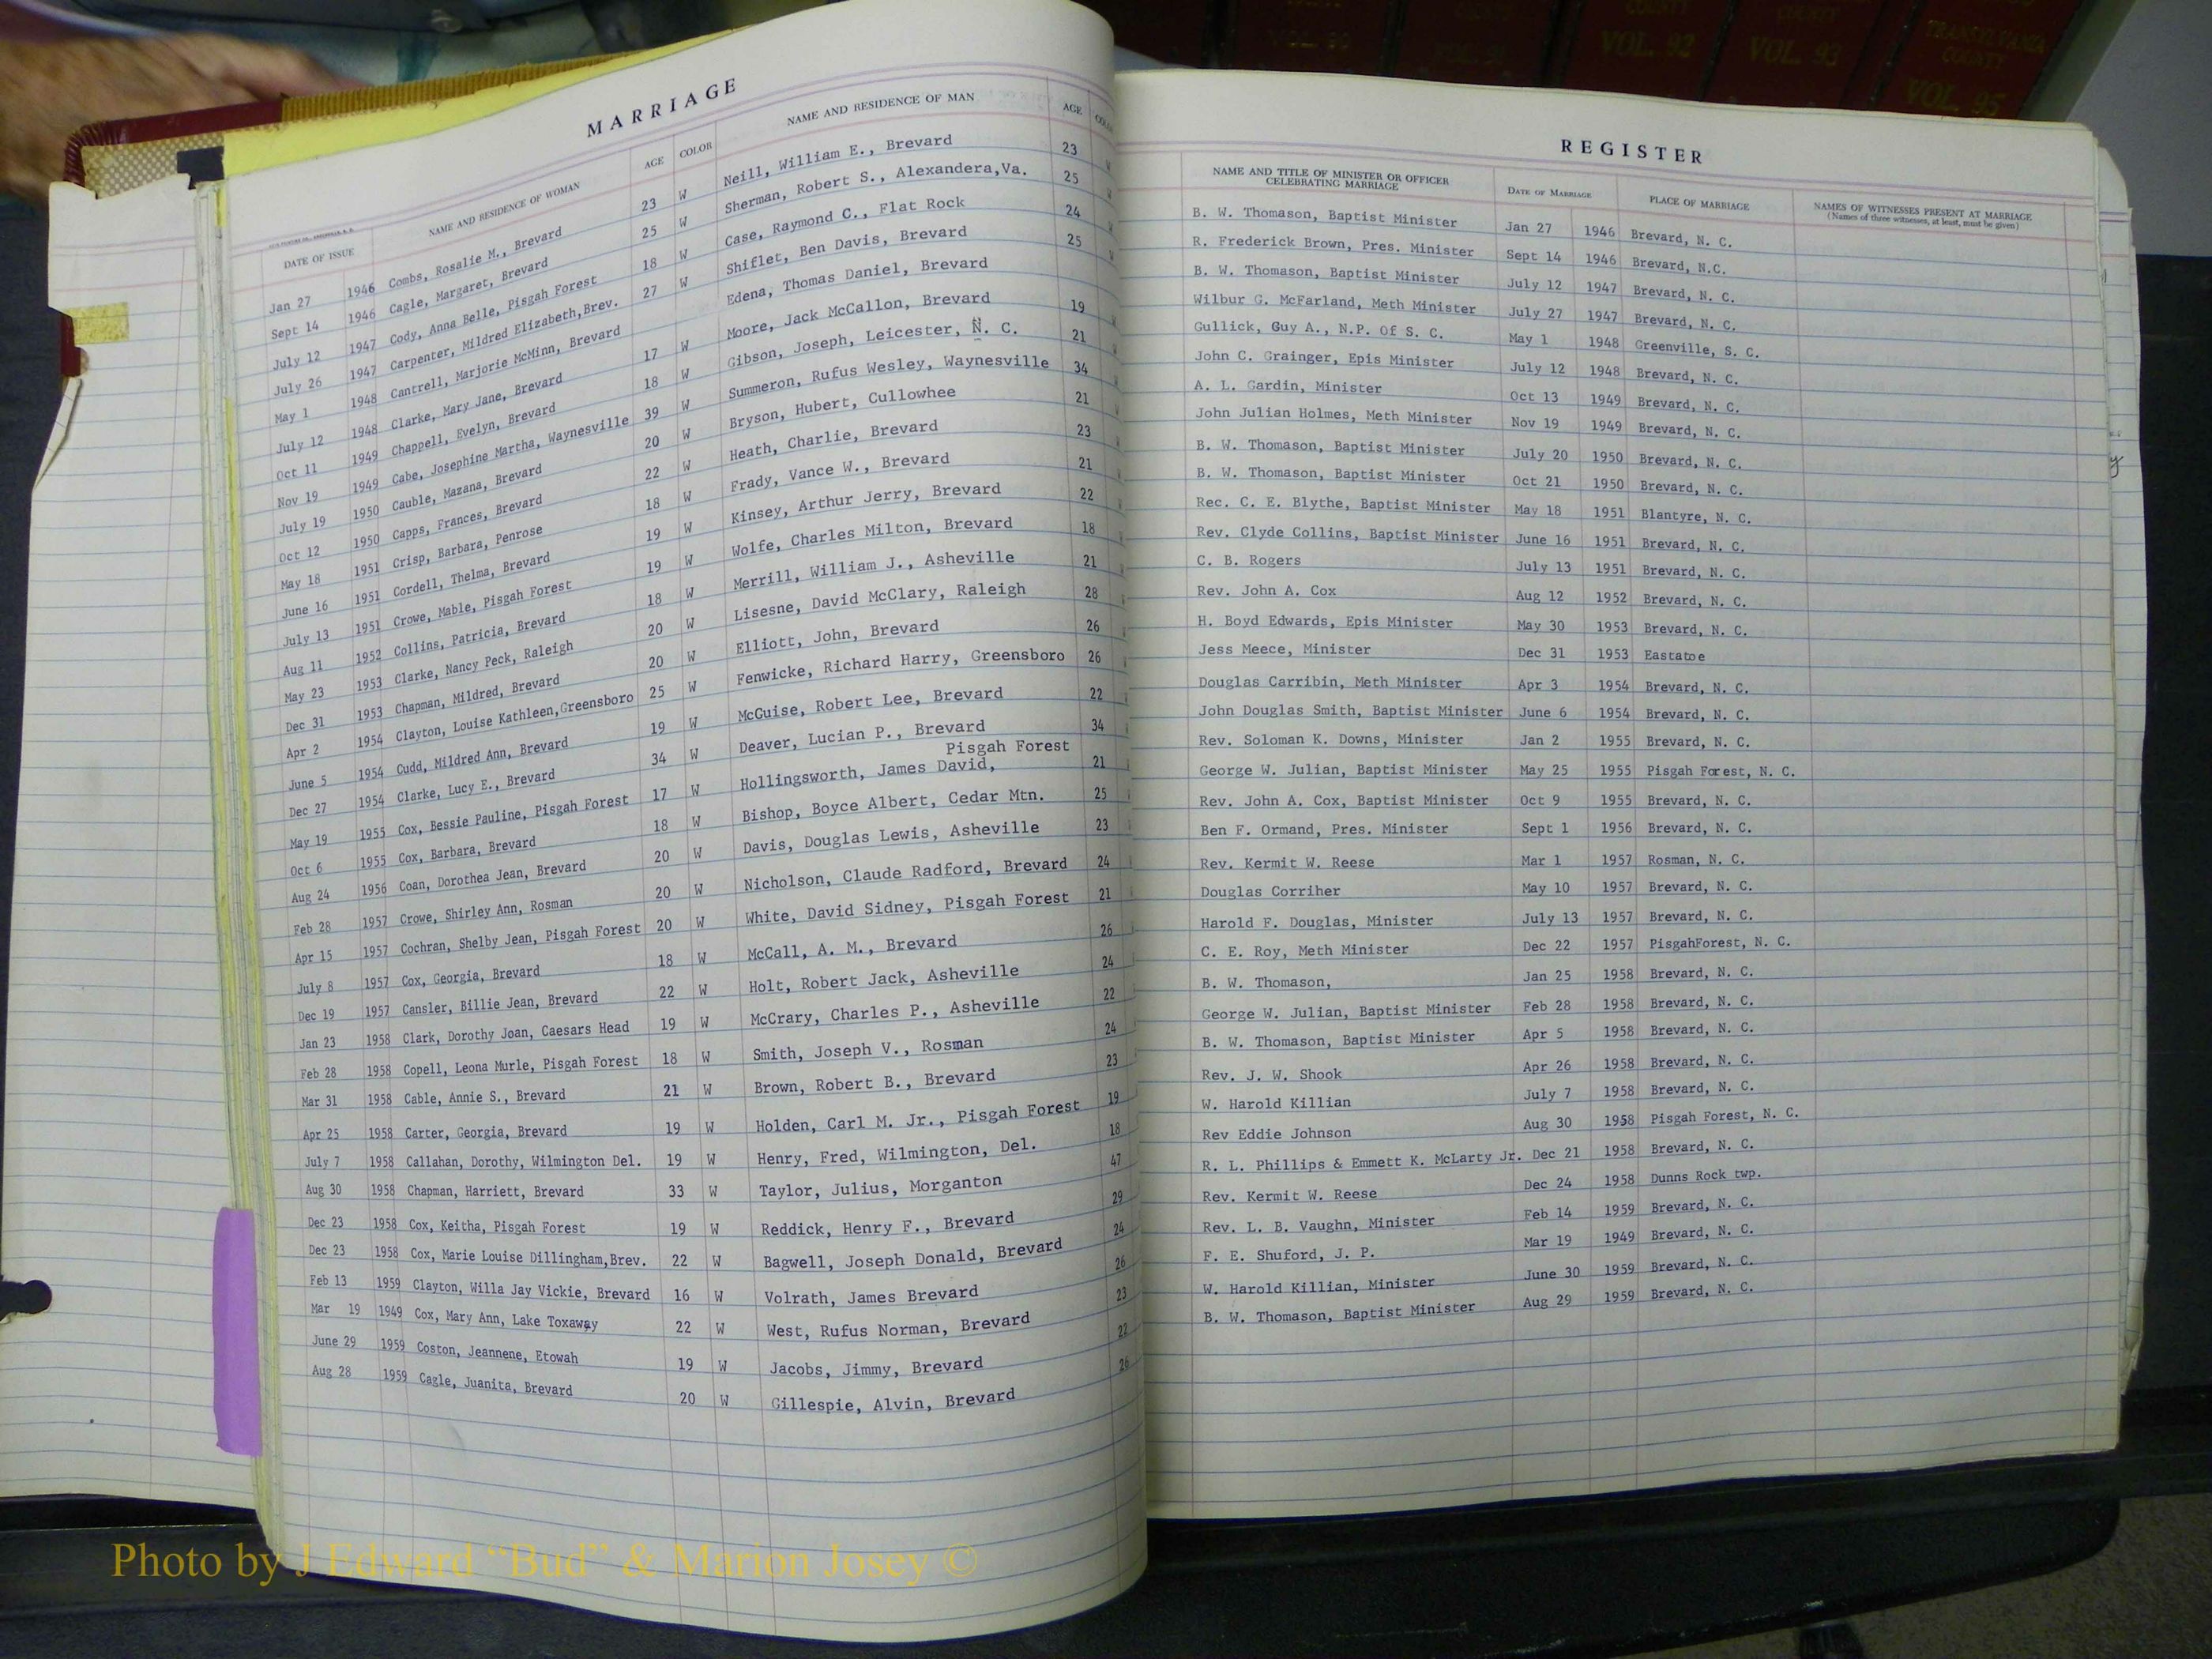 COUNTY VOL. 92
COUNTY VOL. 93
TRANSYLVANIA COUNTY VOL. 95
MARRIAGE
DATE OF ISSUE NAME AND RESIDENCE OF WOMAN AGE COLOR NAME AND RESIDENCE OF MAN AGE
Jan 27 1946 Combs, Rosalie M., Brevard 23 W Neill, William E., Brevard 23
Sept 14 1946 Cagle, Margaret, Brevard 25 W Sherman, Robert S., Alexandera,Va. 25
July 12 1947 Cody, Anna Belle, Pisgah Forest 18 W Case, Raymond C., Flat Rock 24
July 26 1947 Carpenter, Mildred Elizabeth,Brev. 27 W Shiflet, Ben Davis, Brevard 25
May 1 1948 Cantrell, Marjorie McMinn, Brevard Edena, Thomas Daniel, Brevard
July 12 1948 Clarke, Mary Jane, Brevard 17 W Moore, Jack McCallon, Brevard 19
Oct 11 1949 Chappell, Evelyn, Brevard 18 W Gibson, Joseph, Leicester, N. C. 21
Nov 19 1949 Cabe, Josephine Martha, Waynesville 39 W Summeron, Rufus Wesley, Waynesville 34
July 19 1950 Cauble, Mazana, Brevard 20 W Bryson, Hubert, Cullowhee 21
Oct 12 1950 Capps, Frances, Brevard 22 W Heath, Charlie, Brevard 23
May 18 1951 Crisp, Barbara, Penrose 18 W Frady, Vance W., Brevard 21
June 16 1951 Cordell, Thelma, Brevard 19 W Kinsey, Arthur Jerry, Brevard 22
July 13 1951 Crowe, Mable, Pisgah Forest 19 W Wolfe, Charles Milton, Brevard 18
Aug 11 1952 Collins, Patricia, Brevard 18 W Merrill, William J., Asheville 21
May 23 1953 Clarke, Nancy Peck, Raleigh 20 W Lisesne, David McClary, Raleigh 28
Dec 31 1953 Chapman, Mildred, Brevard 20 W Elliott, John, Brevard 26
Apr 2 1954 Clayton, Louise Kathleen,Greensboro 25 W Fenwicke, Richard Harry, Greensboro 26
June 5 1954 Cudd, Mildred Ann, Brevard 19 W McGuise, Robert Lee, Brevard 22
Dec 27 1954 Clarke, Lucy E., Brevard 34 W Deaver, Lucian P., Brevard 34
Pisgah Forest
May 19 1955 Cox, Bessie Pauline, Pisgah Forest 17 W Hollingsworth, James David, 21
Oct 6 1955 Cox, Barbara, Brevard 18 W Bishop, Boyce Albert, Cedar Mtn. 25
Aug 24 1956 Coan, Dorothea Jean, Brevard 20 W Davis, Douglas Lewis, Asheville 23
Feb 28 1957 Crowe, Shirley Ann, Rosman 20 W Nicholson, Claude Radford, Brevard 24
Apr 15 1957 Cochran, Shelby Jean, Pisgah Forest 20 W White, David Sidney, Pisgah Forest 21
July 8 1957 Cox, Georgia, Brevard 18 W McCall, A. M., Brevard 26
Dec 19 1957 Cansler, Billie Jean, Brevard 22 W Holt, Robert Jack, Asheville 24
Jan 23 1958 Clark, Dorothy Joan, Caesars Head 19 W McCrary, Charles P., Asheville 22
Feb 28 1958 Copell, Leona Murle, Pisgah Forest 18 W Smith, Joseph V., Rosman 24
Mar 31 1958 Cable, Annie S., Brevard 21 W Brown, Robert B., Brevard 23
Apr 25 1958 Carter, Georgia, Brevard 19 W Holden, Carl M. Jr., Pisgah Forest 19
July 7 1958 Callahan, Dorothy, Wilmington Del. 19 W Henry, Fred, Wilmington, Del. 18
Aug 30 1958 Chapman, Harriett, Brevard 33 W Taylor, Julius, Morganton 47
Dec 23 1958 Cox, Keitha, Pisgah Forest 19 W Reddick, Henry F., Brevard 29
Dec 23 1958 Cox, Marie Louise Dillingham,Brev. 22 W Bagwell, Joseph Donald, Brevard 24
Feb 13 1959 Clayton, Willa Jay Vickie, Brevard 16 W Volrath, James Brevard 26
Mar 19 1949 Cox, Mary Ann, Lake Toxaway 22 W West, Rufus Norman, Brevard 23
June 29 1959 Coston, Jeannene, Etowah 19 W Jacobs, Jimmy, Brevard 22
Aug 28 1959 Cagle, Juanita, Brevard 20 W Gillespie, Alvin, Brevard 26
REGISTER
NAME AND TITLE OF MINISTER OR OFFICER CELEBRATING MARRIAGE DATE OF MARRIAGE PLACE OF MARRIAGE NAMES OF WITNESSES PRESENT AT MARRIAGE
(Names of three witnesses, at least, must be given)
B. W. Thomason, Baptist Minister Jan 27 1946 Brevard, N. C.
R. Frederick Brown, Pres. Minister Sept 14 1946 Brevard, N.C.
B. W. Thomason, Baptist Minister July 12 1947 Brevard, N. C.
Wilbur G. McFarland, Meth Minister July 27 1947 Brevard, N. C.
Gullick, Guy A., N.P. Of S. C. May 1 1948 Greenville, S. C.
John C. Grainger, Epis Minister July 12 1948 Brevard, N. C.
A. L. Gardin, Minister Oct 13 1949 Brevard, N. C.
John Julian Holmes, Meth Minister Nov 19 1949 Brevard, N. C.
B. W. Thomason, Baptist Minister July 20 1950 Brevard, N. C.
B. W. Thomason, Baptist Minister Oct 21 1950 Brevard, N. C.
Rec. C. E. Blythe, Baptist Minister May 18 1951 Blantyre, N. C.
Rev. Clyde Collins, Baptist Minister June 16 1951 Brevard, N. C.
C. B. Rogers July 13 1951 Brevard, N. C.
Rev. John A. Cox Aug 12 1952 Brevard, N. C.
H. Boyd Edwards, Epis Minister May 30 1953 Brevard, N. C.
Jess Meece, Minister Dec 31 1953 Eastatoe
Douglas Carribin, Meth Minister Apr 3 1954 Brevard, N. C.
John Douglas Smith, Baptist Minister June 6 1954 Brevard, N. C.
Rev. Soloman K. Downs, Minister Jan 2 1955 Brevard, N. C.
George W. Julian, Baptist Minister May 25 1955 Pisgah Forest, N. C.
Rev. John A. Cox, Baptist Minister Oct 9 1955 Brevard, N. C.
Ben F. Ormand, Pres. Minister Sept 1 1956 Brevard, N. C.
Rev. Kermit W. Reese Mar 1 1957 Rosman, N. C.
Douglas Corriher May 10 1957 Brevard, N. C.
Harold F. Douglas, Minister July 13 1957 Brevard, N. C.
C. E. Roy, Meth Minister Dec 22 1957 PisgahForest, N. C.
B. W. Thomason, Jan 25 1958 Brevard, N. C.
George W. Julian, Baptist Minister Feb 28 1958 Brevard, N. C.
B. W. Thomason, Baptist Minister Apr 5 1958 Brevard, N. C.
Rev. J. W. Shook Apr 26 1958 Brevard, N. C.
W. Harold Killian July 7 1958 Brevard, N. C.
Rev Eddie Johnson Aug 30 1958 Pisgah Forest, N. C.
R. L. Phillips & Emmett K. McLarty Jr. Dec 21 1958 Brevard, N. C.
Rev. Kermit W. Reese Dec 24 1958 Dunns Rock twp.
Rev. L. B. Vaughn, Minister Feb 14 1959 Brevard, N. C.
F. E. Shuford, J. P. Mar 19 1949 Brevard, N. C.
W. Harold Killian, Minister June 30 1959 Brevard, N. C.
B. W. Thomason, Baptist Minister Aug 29 1959 Brevard, N. C.
Photo by J Edward “Bud” & Marion Josey ©